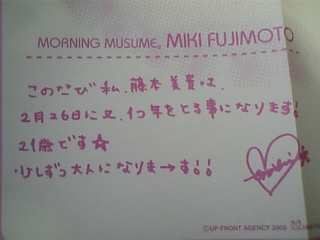 MORNING MUSUME。 MIKI FUJIMOTO
このたび私、藤本美貴は、
2月26日に又、1つ年をとる事になります!
21歳です☆
少しずつ大人になりまーす!!
©UP-FRONT AGENCY 2006